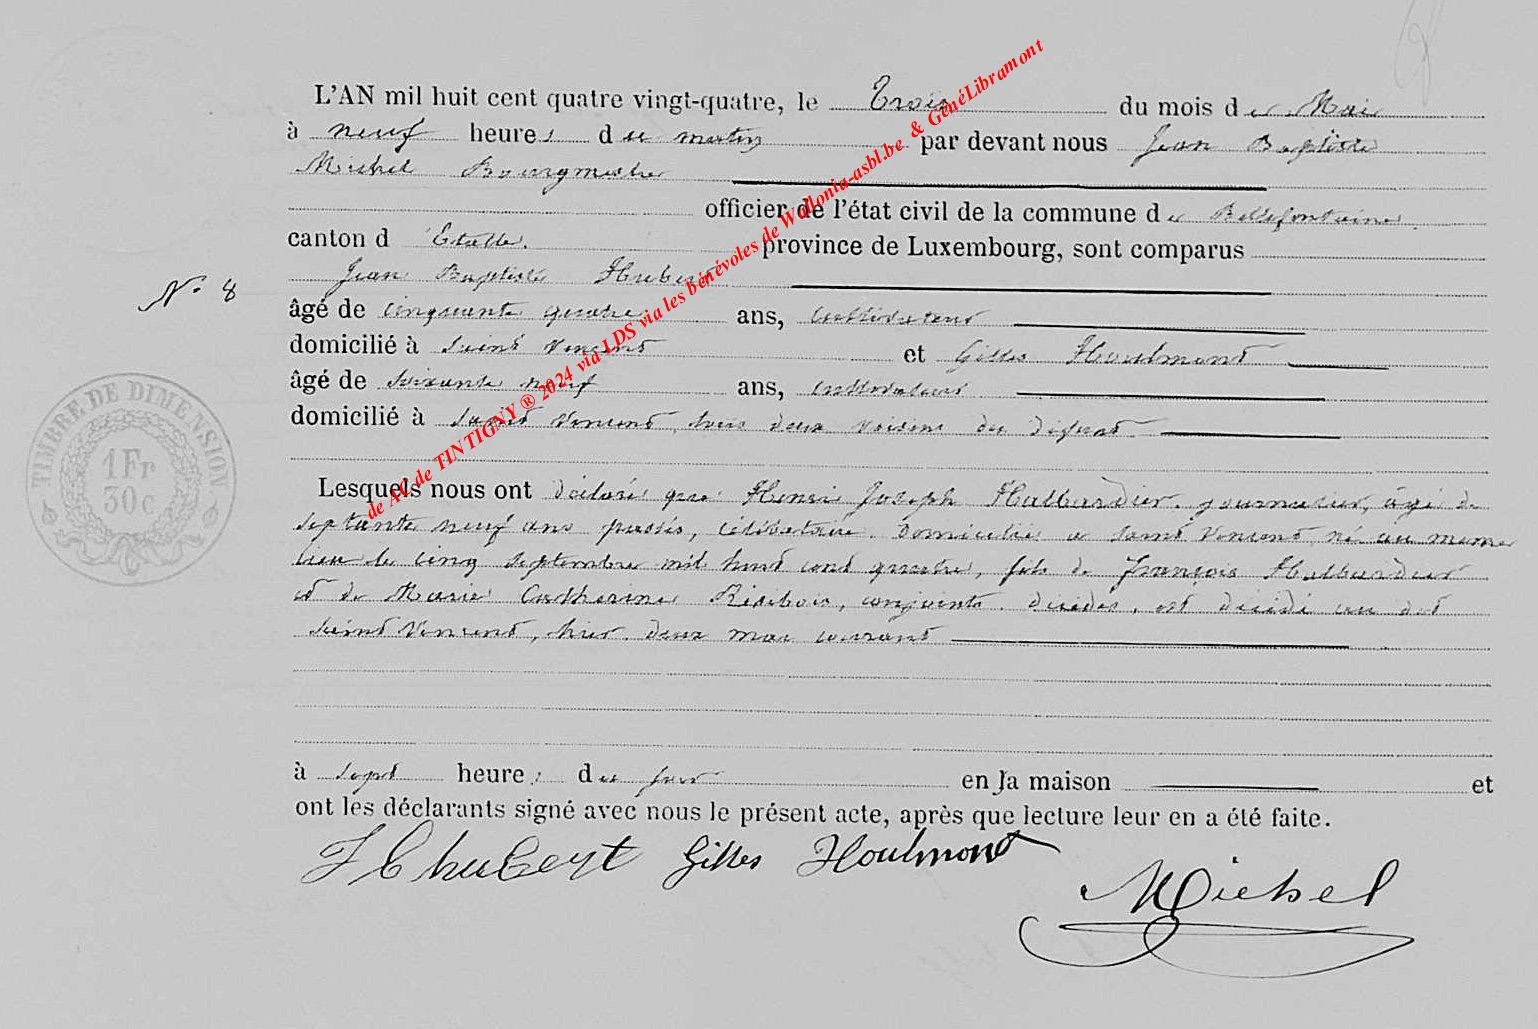 L'AN mil huit cent quatre vingt-quatre, le Trois du mois de Mai
à neuf heures du matin par devant nous Jean Baptiste
Michel Bourgmestre
officier de l'état civil de la commune de Bellefontaine
canton d'Etalle. province de Luxembourg, sont comparus
Jean Baptiste Hubert
N° 8
âgé de cinquante quatre ans, cultivateur
domicilié à Saint Vincent et Gilles Houlmont
âgé de soixante neuf ans, cultivateur
domicilié à Saint Vincent, tous deux voisins du défunt.
TIMBRE DE DIMENSION
1 Fr
30 c
Lesquels nous ont déclaré que Henri Joseph Halbardier, journalier, âgé de
septante neuf ans passés, célibataire, domicilié à Saint Vincent, né au même
lieu le cinq septembre mil huit cent quatre, fils de François Halbardier
et de Marie Catherine conjoints décédés, est décédé au dit
Saint Vincent, hier deux mai courant
à sept heures du soir en la maison et
ont les déclarants signé avec nous le présent acte, après que lecture leur en a été faite.
JBhubert Gilles Houlmont
Michel
de AC de TINTIGNY ® 2024 via LDS via les bénévoles de Wallonia-asbl.be & GénéLibramont